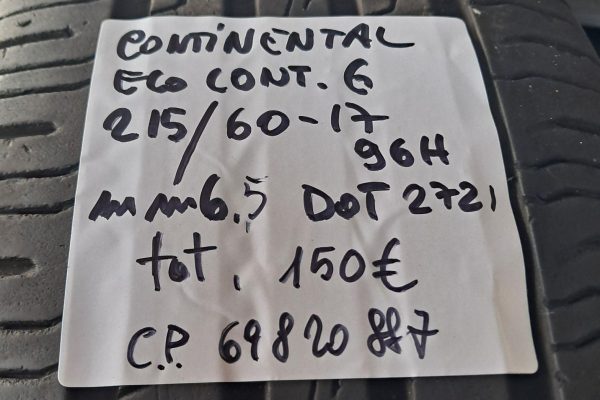 CONTINENTAL
ECO CONT. 6
215/60-17
96H
mm 6,5 DOT 2721
tot. 150€
C.P. 69820887